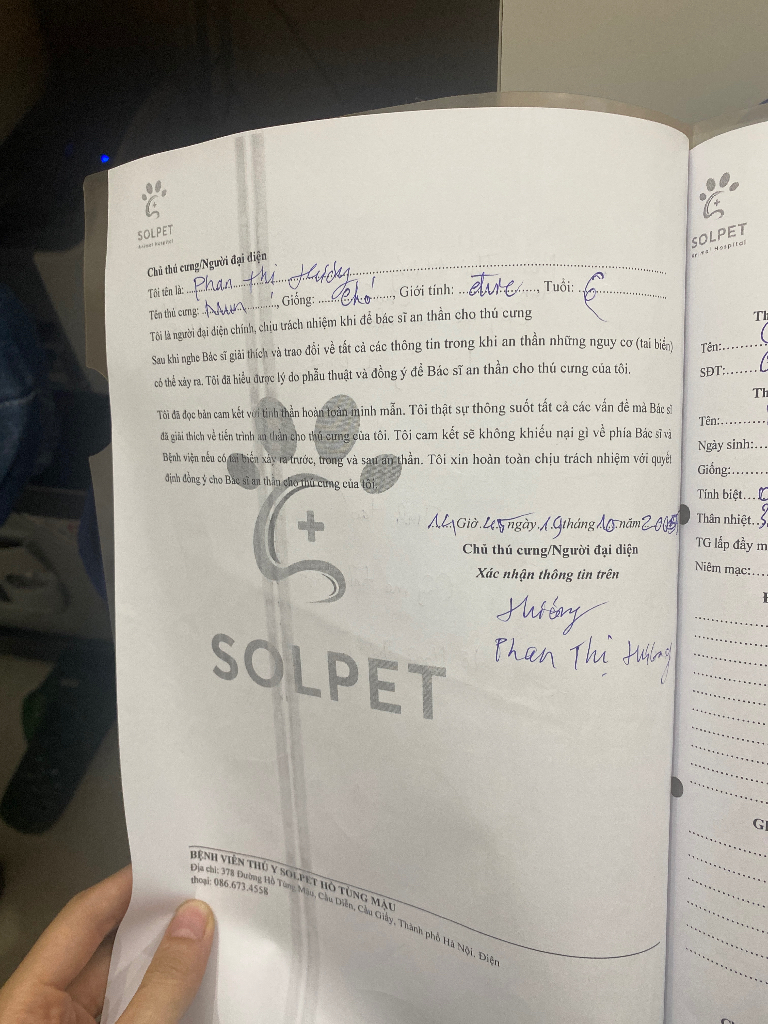 SOLPET
Animal Hospital
Chủ thú cưng/Người đại diện
Tôi tên là: Phan Thị Hường
Tên thú cưng: , Giống: chó, Giới tính: đực, Tuổi: 6
Tôi là người đại diện chính, chịu trách nhiệm khi để bác sĩ an thần cho thú cưng
Sau khi nghe Bác sĩ giải thích và trao đổi về tất cả các thông tin trong khi an thần những nguy cơ (tai biến)
có thể xảy ra. Tôi đã hiểu được lý do phẫu thuật và đồng ý để Bác sĩ an thần cho thú cưng của tôi.
Tôi đã đọc bản cam kết với tinh thần hoàn toàn minh mẫn. Tôi thật sự thông suốt tất cả các vấn đề mà Bác sĩ
đã giải thích về tiến trình an thần cho thú cưng của tôi. Tôi cam kết sẽ không khiếu nại gì về phía Bác sĩ và
Bệnh viện nếu có tai biến xảy ra trước, trong và sau an thần. Tôi xin hoàn toàn chịu trách nhiệm với quyết
định đồng ý cho Bác sĩ an thần cho thú cưng của tôi.
14 Giờ 45 ngày 19 tháng 10 năm
Chủ thú cưng/Người đại diện
Xác nhận thông tin trên
Hường
Phan Thị Hường
SOLPET
BỆNH VIỆN THÚ Y SOLPET HỒ TÙNG MẬU
Địa chỉ: 378 Đường Hồ Tùng Mậu, Cầu Diễn, Cầu Giấy, Thành phố Hà Nội. Điện
thoại: 086.673.4558
SOLPET
Animal Hospital
Th
Tên:
SĐT:
Th
Tên:
Ngày sinh:
Giống:
Tính biệt
Thân nhiệt
TG lấp đầy m
Niêm mạc: